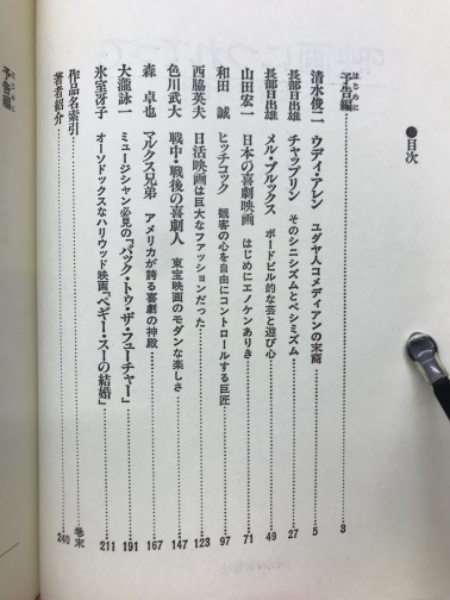 ●目次
予告編 はじめに 3
清水俊二 ウディ・アレン ユダヤ人コメディアンの末裔 5
長部日出雄 チャップリン そのシニシズムとペシミズム 27
長部日出雄 メル・ブルックス ボードビル的な芸と遊び心 49
山田宏一 日本の喜劇映画 はじめにエノケンありき 71
和田 誠 ヒッチコック 観客の心を自由にコントロールする巨匠 97
西脇英夫 日活映画は巨大なファッションだった 123
色川武大 戦中・戦後の喜劇人 東宝映画のモダンな楽しさ 147
森 卓也 マルクス兄弟 アメリカが誇る喜劇の神殿 167
大瀧詠一 ミュージシャン必見の『バック・トゥ・ザ・フューチャー』 191
氷室冴子 オーソドックスなハリウッド映画『ペギー・スーの結婚』 211
作品名索引 巻末
著者紹介 240
予告編